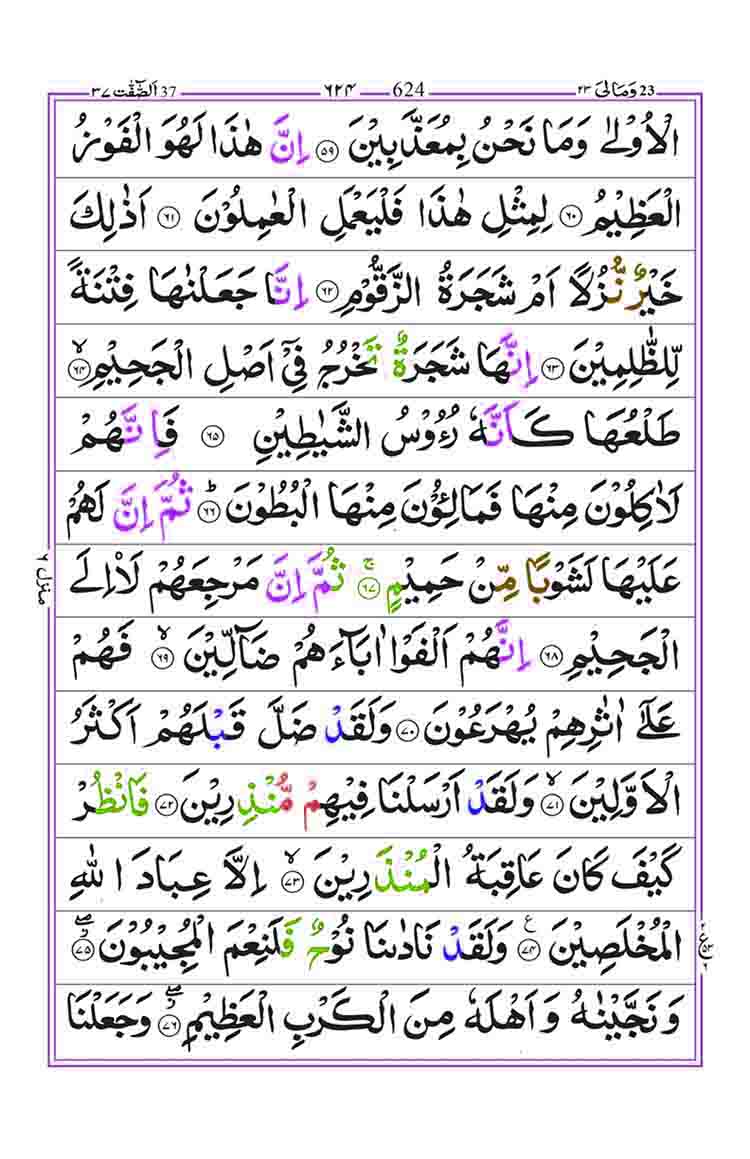 23 وَمَالِیَ ٢٣ 624 ٦٢٤ 37 اَلصّٰٓفّٰت ٣٧
الْاُوْلٰى وَمَا نَحْنُ بِمُعَذَّبِيْنَ ﴿٥٩﴾ اِنَّ هٰذَا لَهُوَ الْفَوْزُ
الْعَظِيْمُ ﴿٦٠﴾ لِمِثْلِ هٰذَا فَلْيَعْمَلِ الْعٰمِلُوْنَ ﴿٦١﴾ اَذٰلِكَ
خَيْرٌ نُّزُلًا اَمْ شَجَرَةُ الزَّقُّوْمِ ﴿٦٢﴾ اِنَّا جَعَلْنٰهَا فِتْنَةً
لِّلظّٰلِمِيْنَ ﴿٦٣﴾ اِنَّهَا شَجَرَةٌ تَخْرُجُ فِيْٓ اَصْلِ الْجَحِيْمِ ۙ﴿٦٤﴾
طَلْعُهَا كَاَنَّهٗ رُءُوْسُ الشَّيٰطِيْنِ ﴿٦٥﴾ فَاِنَّهُمْ
لَاٰكِلُوْنَ مِنْهَا فَمَالِـُٔوْنَ مِنْهَا الْبُطُوْنَ ؕ﴿٦٦﴾ ثُمَّ اِنَّ لَهُمْ
عَلَيْهَا لَشَوْبًا مِّنْ حَمِيْمٍ ۚ﴿٦٧﴾ ثُمَّ اِنَّ مَرْجِعَهُمْ لَاۡاِلَى
الْجَحِيْمِ ﴿٦٨﴾ اِنَّهُمْ اَلْفَوْا اٰبَآءَهُمْ ضَآلِّيْنَ ۙ﴿٦٩﴾ فَهُمْ
عَلٰٓى اٰثٰرِهِمْ يُهْرَعُوْنَ ﴿٧٠﴾ وَلَقَدْ ضَلَّ قَبْلَهُمْ اَكْثَرُ
الْاَوَّلِيْنَ ۙ﴿٧١﴾ وَلَقَدْ اَرْسَلْنَا فِيْهِمْ مُّنْذِرِيْنَ ﴿٧٢﴾ فَانْظُرْ
كَيْفَ كَانَ عَاقِبَةُ الْمُنْذَرِيْنَ ۙ﴿٧٣﴾ اِلَّا عِبَادَ اللّٰهِ
الْمُخْلَصِيْنَ ﴿٧٤﴾ ع وَلَقَدْ نَادٰىنَا نُوْحٌ فَلَنِعْمَ الْمُجِيْبُوْنَ ۖ﴿٧٥﴾
وَنَجَّيْنٰهُ وَاَهْلَهٗ مِنَ الْكَرْبِ الْعَظِيْمِ ۖ﴿٧٦﴾ وَجَعَلْنَا
منزل ٦